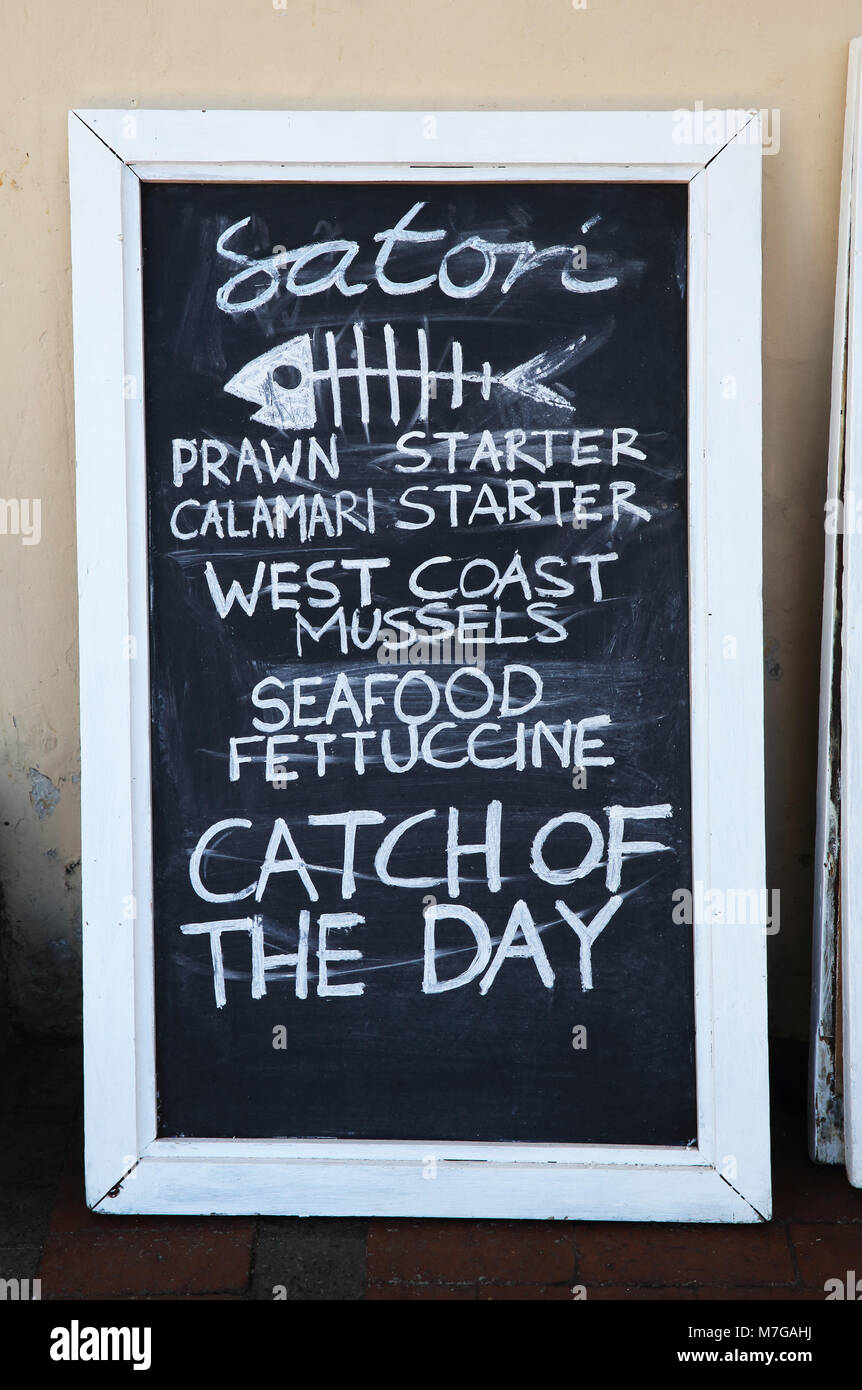 Satori
PRAWN STARTER
CALAMARI STARTER
WEST COAST
MUSSELS
SEAFOOD
FETTUCCINE
CATCH OF
THE DAY
alamy
Image ID: M7GAHJ
www.alamy.com